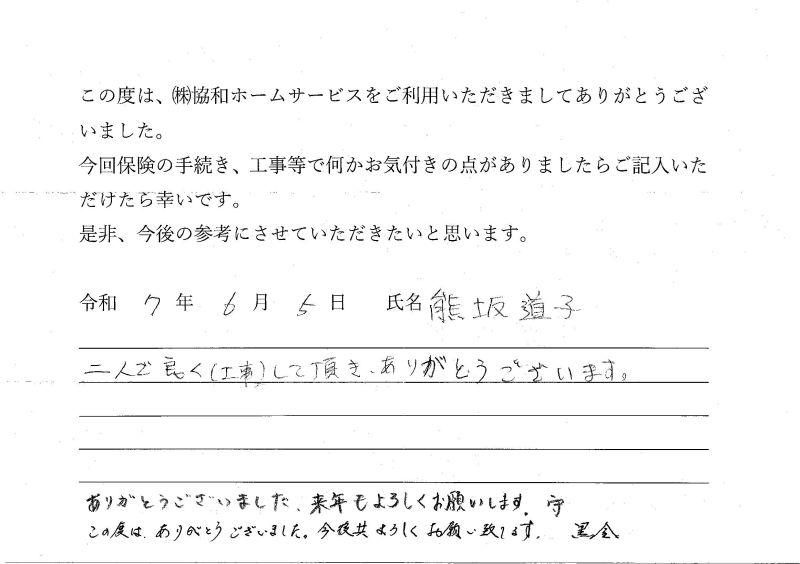 この度は、㈱協和ホームサービスをご利用いただきましてありがとうござ
いました。
今回保険の手続き、工事等で何かお気付きの点がありましたらご記入いた
だけたら幸いです。
是非、今後の参考にさせていただきたいと思います。
令和 7 年 6 月 5 日 氏名 熊坂道子
二人で良く(工事)して頂き、ありがとうございます。
ありがとうございました、来年もよろしくお願いします。 守
この度は、ありがとうございました。今後共よろしくお願い致します。 黒金